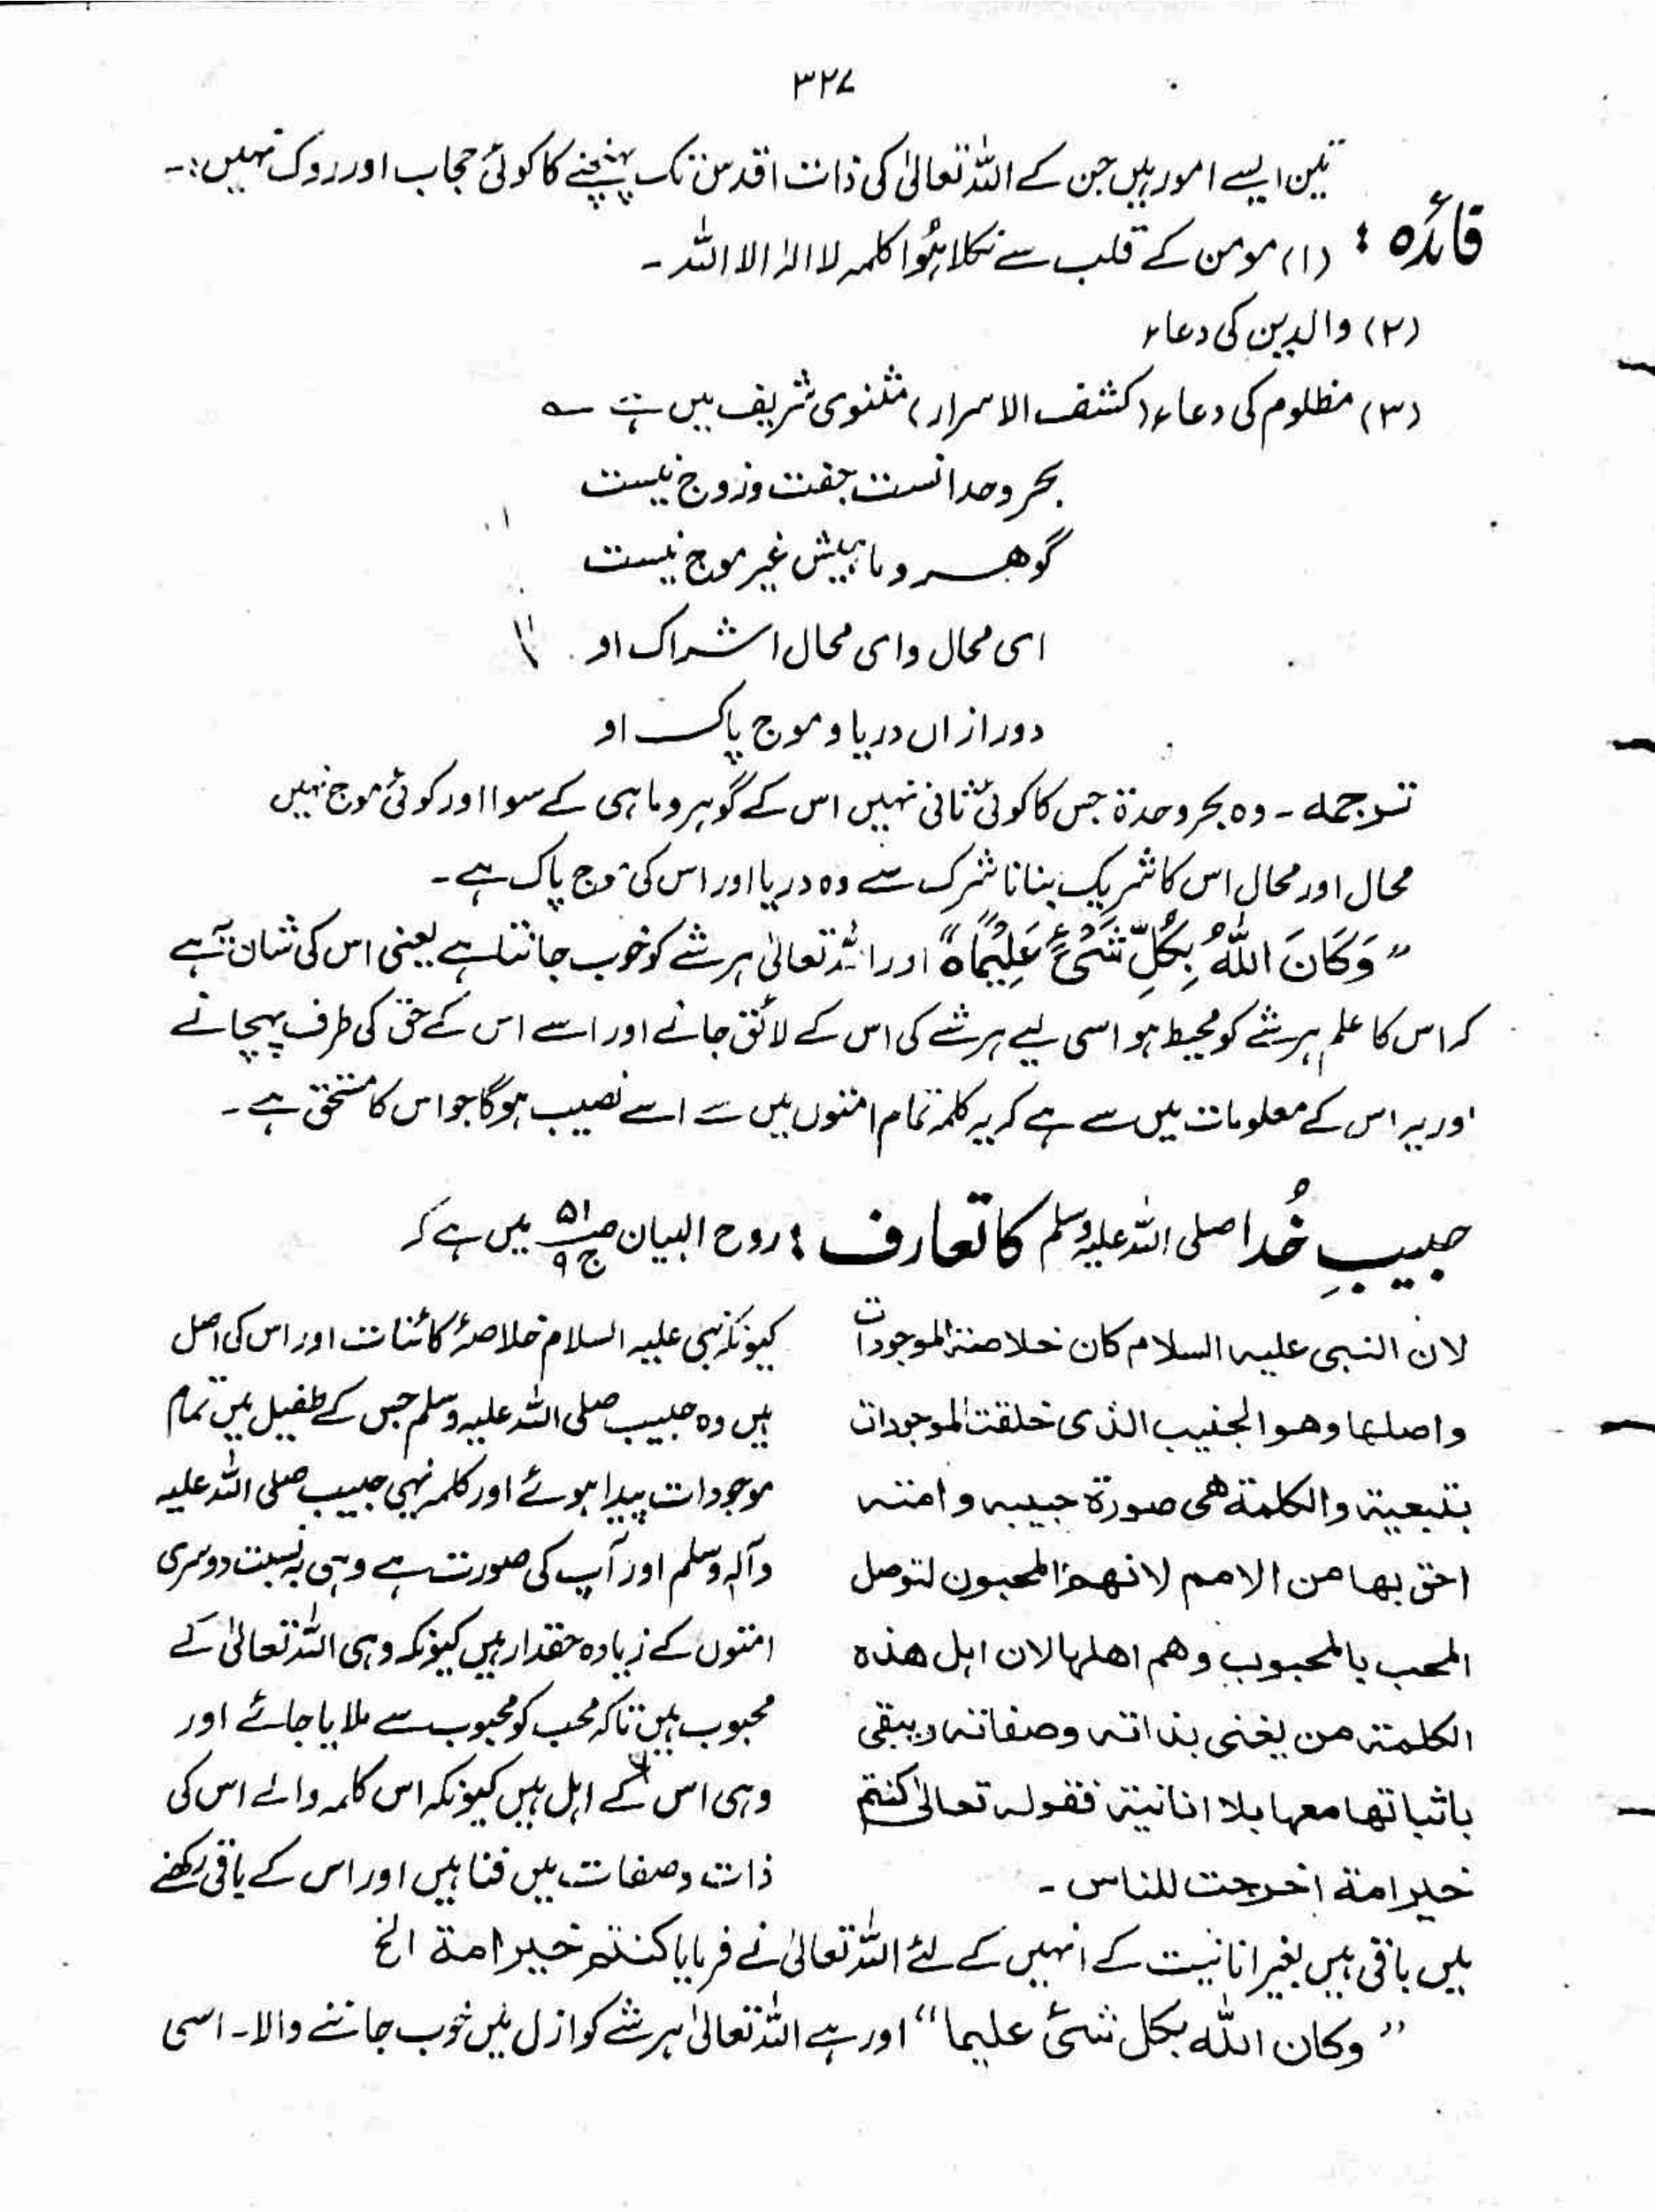 ۳۲۷
تین ایسے امور ہیں جن کے اللہ تعالیٰ کی ذات اقدس تک پہنچنے کا کوئی حجاب اور روک نہیں:۔
فائدہ : (۱) مومن کے قلب سے نکلا ہُوا کلمہ لا الہ الا اللہ ۔
(۲) والدین کی دعاء
(۳) مظلوم کی دعاء (کشف الاسرار) مثنوی شریف میں ہے ؎
بحر وحدانست جفت وزوج نیست
گوھر و ماہیش غیر موج نیست
ای محال وای محال اشراک او
دور ازاں دریا و موج پاک او
ترجمہ ۔ وہ بحر وحدۃ جس کا کوئی ثانی نہیں اس کے گوہر و ماہی کے سوا اور کوئی موج نہیں
محال اور محال اس کا شریک بنانا شرک سے وہ دریا اور اس کی موج پاک ہے ۔
”وَکَانَ اللہُ بِکُلِّ شَیْءٍ عَلِیْمًا ہ“ اور اللہ تعالیٰ ہر شے کو خوب جانتا ہے یعنی اس کی شان ہے
کہ اس کا علم ہر شے کو محیط ہو اسی لیے ہر شے کی اس کے لائق جانے اور اسے اس کے حق کی طرف پہچانے
اور یہ اس کے معلومات میں سے ہے کہ یہ کلمہ تمام امتوں میں سے اسے نصیب ہو گا جو اس کا مستحق ہے ۔
حبیبِ خُدا صلی اللہ علیہ وسلم کا تعارف : روح البیان ص ۵۱ ج ۹ میں ہے کہ
لان النبی علیہ السلام کان خلاصۃ الموجودات
واصلہا وھو الحبیب الذی خلقت الموجودات
بتبعیتہ والکلمۃ ھی صورۃ حبیبہ وامتہ
احق بھا من الامم لانھم المحبون لتوصل
المحب بالمحبوب وھم اھلہا لان اہل ھذہ
الکلمۃ من یفنی بذاتہ وصفاتہ ویبقی
باثباتھا معہا بلا انانیۃ فقولہ تعالیٰ کنتم
خیر امۃ اخرجت للناس ۔
کیونکہ نبی علیہ السلام خلاصۂ کائنات اور اس کی اصل
ہیں وہ حبیب صلی اللہ علیہ وسلم جس کے طفیل میں تمام
موجودات پیدا ہوئے اور کلمہ نہی حبیب صلی اللہ علیہ
وآلہ وسلم اور آپ کی صورت ہے وہی بہ نسبت دوسری
امتوں کے زیادہ حقدار ہیں کیونکہ وہی اللہ تعالیٰ کے
محبوب ہیں تاکہ محب کو محبوب سے ملایا جائے اور
وہی اس کے اہل ہیں کیونکہ اس کلمہ والے اس کی
ذات و صفات میں فنا ہیں اور اس کے باقی رکھنے
میں باقی ہیں بغیر انانیت کے انہیں کے لئے اللہ تعالیٰ نے فرمایا کنتم خیر امۃ الخ
”وکان اللہ بکل شئ علیما“ اور ہے اللہ تعالیٰ ہر شے کو ازل میں خوب جاننے والا۔ اسی